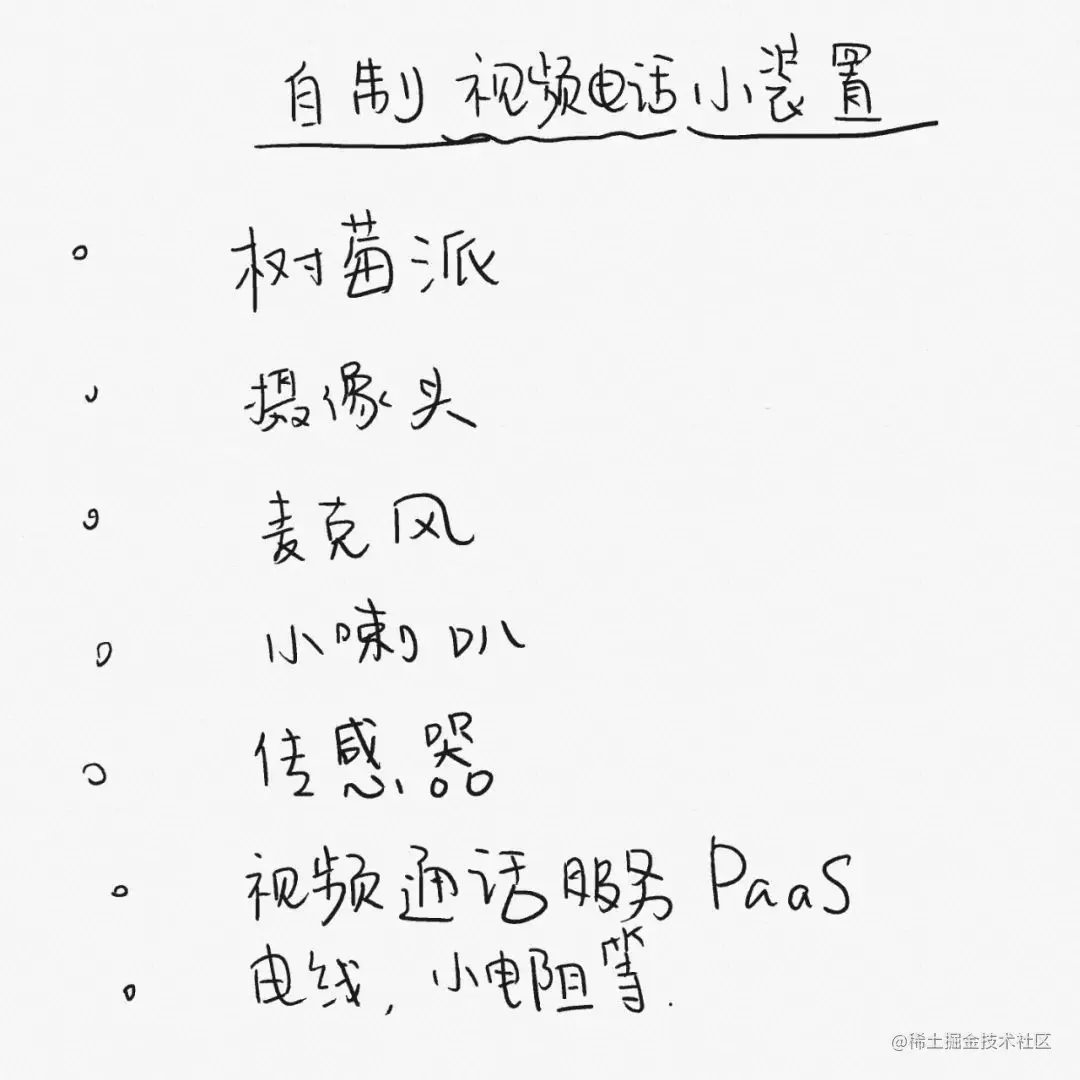 自制视频电话小装置
树莓派
摄像头
麦克风
小喇叭
传感器
视频通话服务 PaaS
电线，小电阻等.
@稀土掘金技术社区